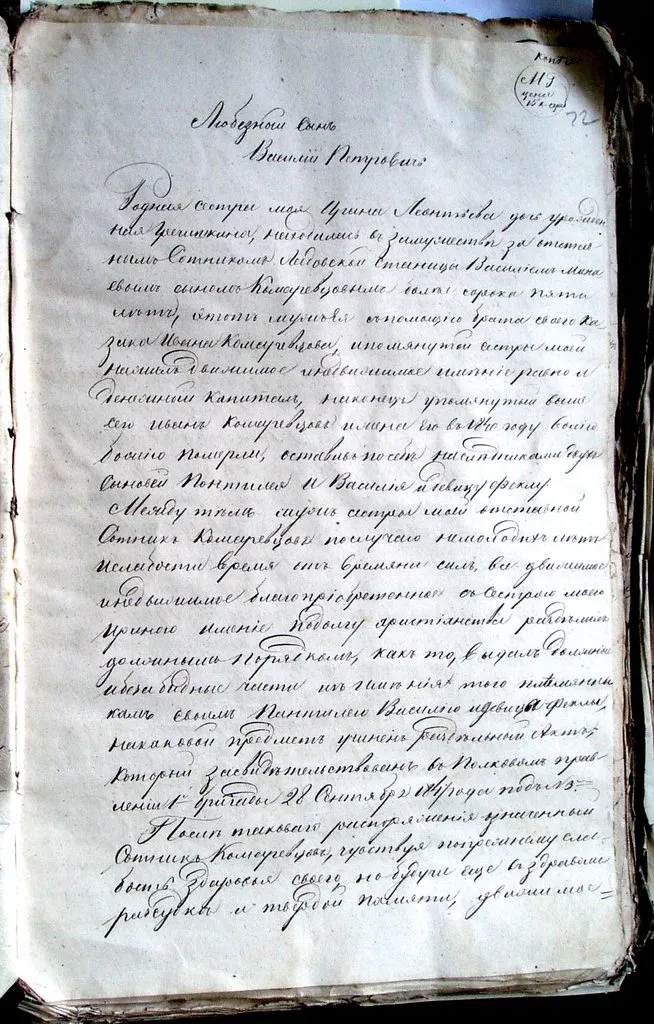 Любезной сынъ
Василій Петровичъ
Родная сестра моя Ирина Леонтьева дочь урожден
ная Гречишкина, находилась въ замужествѣ за отстав
нымъ Сотникомъ Станицы Василіемъ
евымъ сыномъ Комаревцовымъ болѣе сорока пяти
лѣтъ, этотъ мужъ ея съ помощію брата своего ка
зака Ивана Комаревцова, и помянутой сестры моей
нажилъ движимое и недвижимое имѣніе равно и
денежной капиталъ, наконецъ упомянутый выше
сего Иванъ Комаревцовъ и жена его въ 1840 году волію
божіею померли, оставивъ по себѣ наслѣдниками двухъ
сыновей Пантилея и Василія и девицу Феклу
Между тѣмъ мужъ сестры моей отставной
Сотникъ Комаревцовъ по случаю немолодыхъ лѣтъ
и слабости время отъ времяни силъ, все движимое
и недвижимое благопріобретенное съ сестрою моею
Ириною имѣніе по долгу христіянства раздѣлилъ
должнымъ порядкомъ, какъ то, выдалъ должныя
и безобидныя части изъ имѣнія того племянни
камъ своимъ Пантилею Василію и девицѣ Феклы,
на каковой предметъ учиненъ раздѣльной Актъ,
который засвидѣтельствованъ въ Полковомъ прав
леніи 1й бригады 28 Сентября
Послѣ таковаго распоряженія означенный
Сотникъ Комаревцовъ, чувствуя попрежнему сла
бость здоровья своего, но будучи еще въ здравомъ
разсудкѣ и твердой памяти, движимое=
72